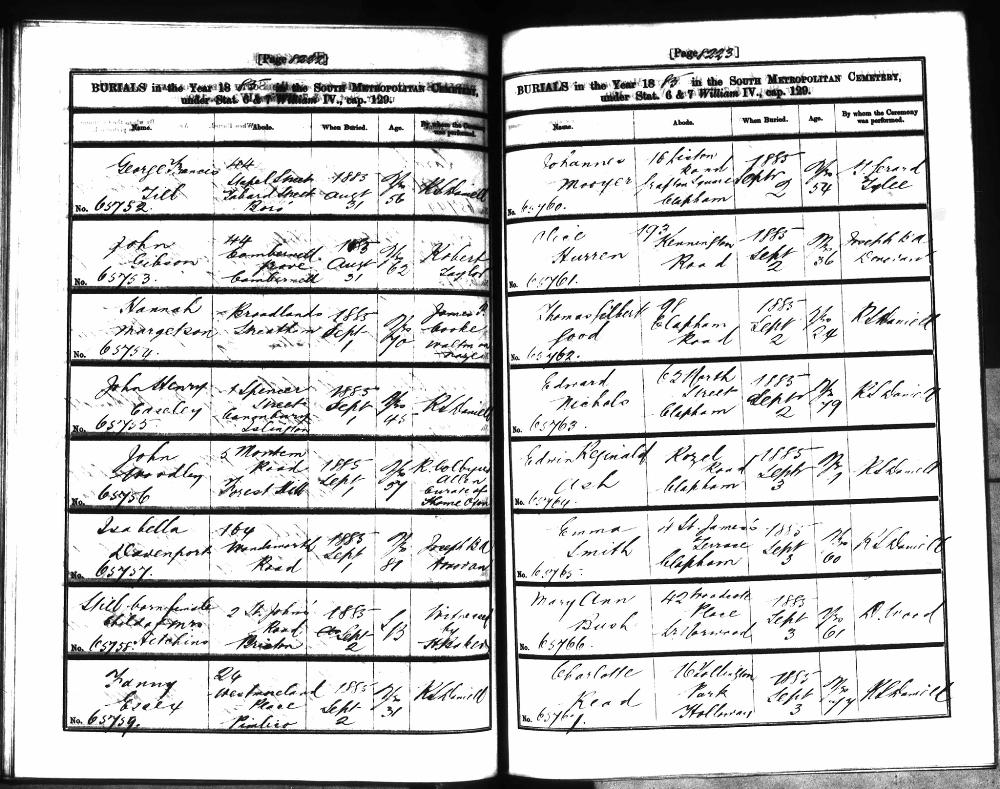 [Page 8222]
BURIALS in the Year 1885 in the SOUTH METROPOLITAN CEMETERY,
under Stat. 6 & 7 William IV., cap. 129.
Name. Abode. When Buried. Age. By whom the Ceremony was performed.
George Francis
Till
No. 65752.
44
Street
Tabard Street
Boro'
1885
Aug
31
Yrs
56
R S Daniell
John
Gibson
No. 65753.
44
Camberwell
Grove
Camberwell
1885
Augt
31
Yrs
62
Robert
Taylor
Hannah
Margetson
No. 65754.
Broadlands
Streatham
1885
Sept
1
Yrs
70
James
Cooke
Walton on
Naze
John Henry
Easeley
No. 65755
Spencer
Street
Canonbury
Islington
1885
Sept
1
Yrs
45
R S Daniell
John
Woodley
No. 65756
5
Road
Forest Hill
1885
Sept
1
Yrs
57
R. Colbyne
Allen
Curate of
Isabella
Davenport
No. 65757.
164
Wandsworth
Road
1885
Sept
1
Yrs
81
Joseph Bd
Still-born female
Child of Mrs
Hitchins
No. 65758.
2 St. John's
Road
Brixton
1885
Sept
2
S/B
Witnessed
by
H. Baker
Fanny
Essex
No. 65759.
24
Westmoreland
Place
Pimlico
1885
Sept
2
Yrs
31
R S Daniell
[Page 8223]
BURIALS in the Year 1885 in the SOUTH METROPOLITAN CEMETERY,
under Stat. 6 & 7 William IV., cap. 129.
Name. Abode. When Buried. Age. By whom the Ceremony was performed.
Johannes
Mooyer
No. 65760.
16 Liston
Road
Grafton Square
Clapham
1885
Septr
2
Yrs
54
Gerard
Alice
Hurren
No. 65761.
193
Kennington
Road
1885
Sept
2
36
Joseph Bd
Thomas Gilbert
Good
No. 65762.
98
Clapham
Road
1885
Sept
2
Yrs
24
R S Daniell
Edward
Nichols
No. 65763.
62 North
Street
Clapham
1885
Septr
2
Yrs
79
R S Daniell
Edwin Reginald
Ash
No. 65764.
Rozel
Road
Clapham
1885
Sept
3
R S Daniell
Emma
Smith
No. 65765.
4 St. James's
Terrace
Clapham
1885
Sept
3
Yrs
60
R S Daniell
Mary Ann
Bush
No. 65766.
42 Woodcote
Place
Lr Norwood
1885
Sept
3
Yrs
61
D. Wood
Charlotte
Read
No. 65767.
16 Tollington
Park
Holloway
1885
Sept
3
Yrs
74
R S Daniell